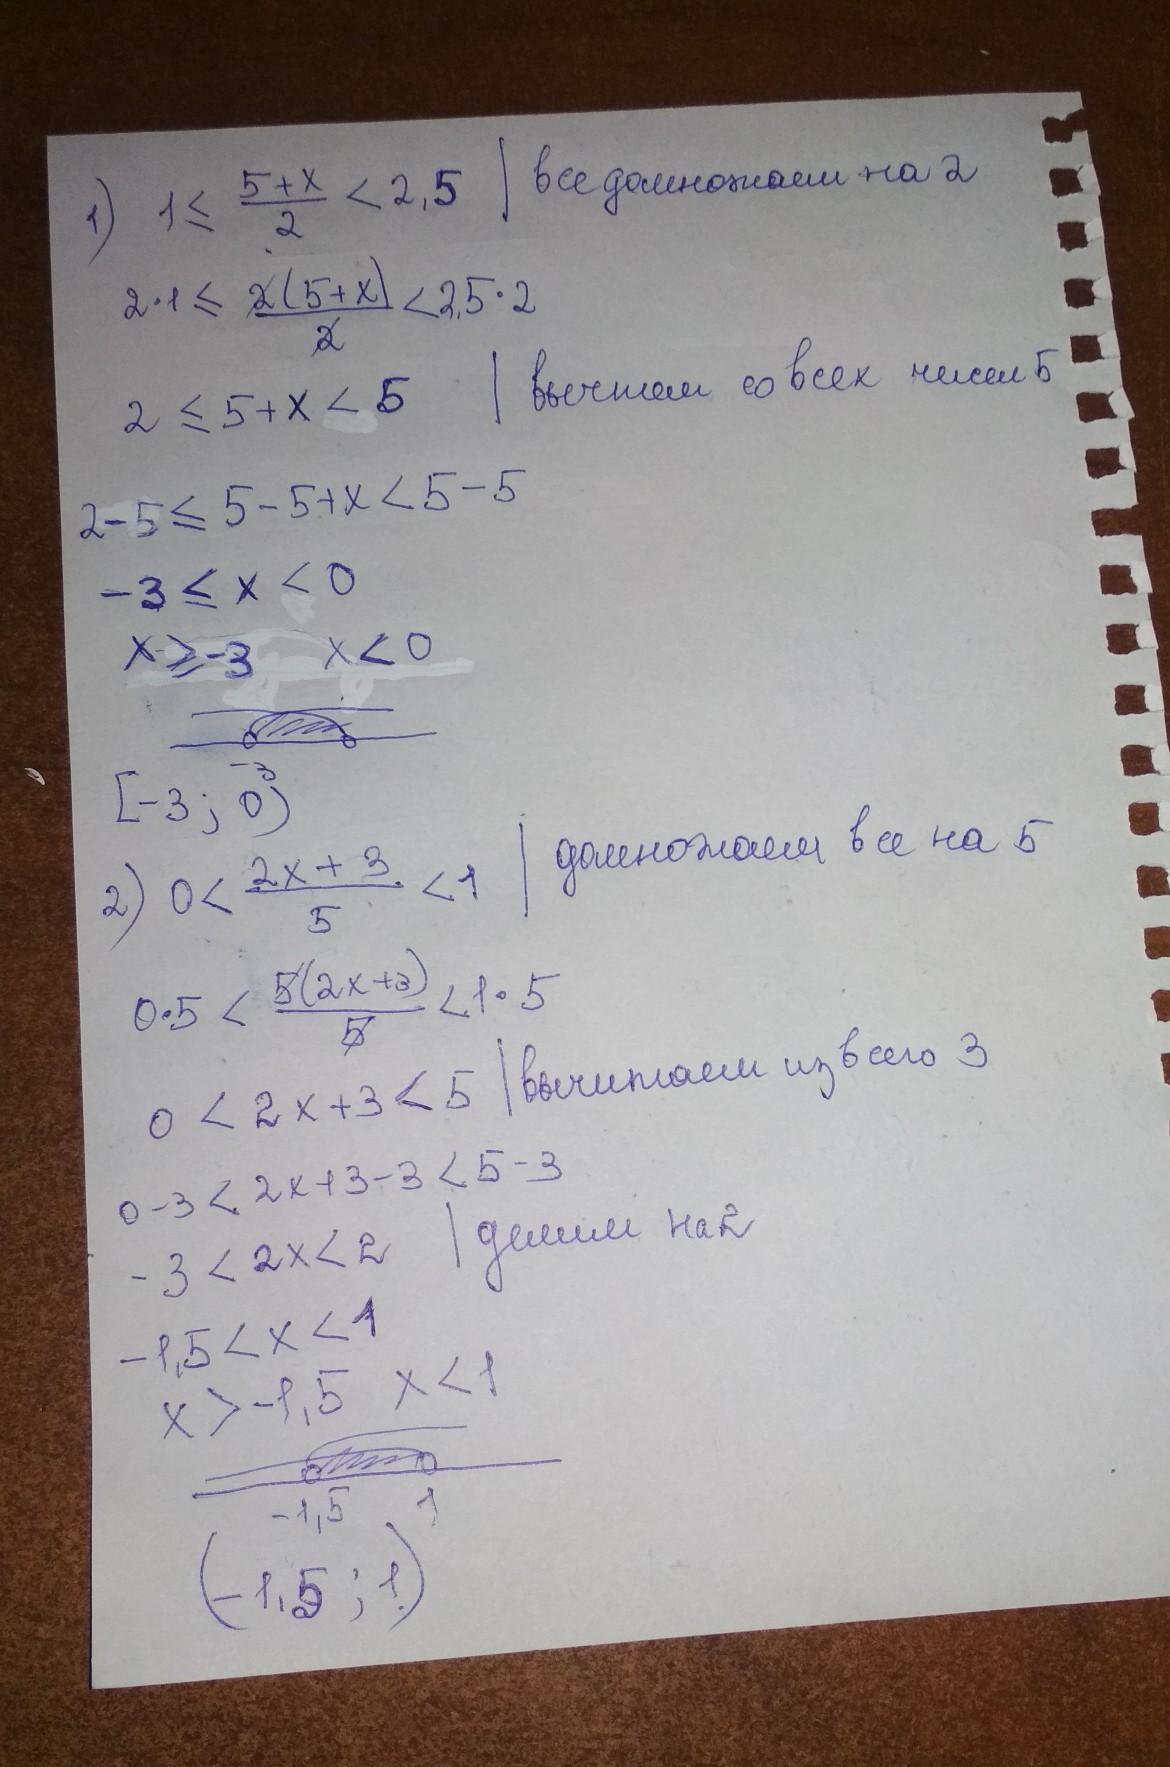 1) 1 ≤ (5+x)/2 < 2,5 | все домножаем на 2
2·1 ≤ 2(5+x)/2 < 2,5·2
2 ≤ 5+x < 5 | вычтем со всех чисел 5
2-5 ≤ 5-5+x < 5-5
-3 ≤ x < 0
x ≥ -3 x < 0
-3
[-3; 0)
2) 0 < (2x+3)/5 < 1 | домножаем все на 5
0·5 < 5(2x+3)/5 < 1·5
0 < 2x+3 < 5 | вычитаем из всего 3
0-3 < 2x+3-3 < 5-3
-3 < 2x < 2 | делим на 2
-1,5 < x < 1
x > -1,5 x < 1
-1,5 1
(-1,5; 1)